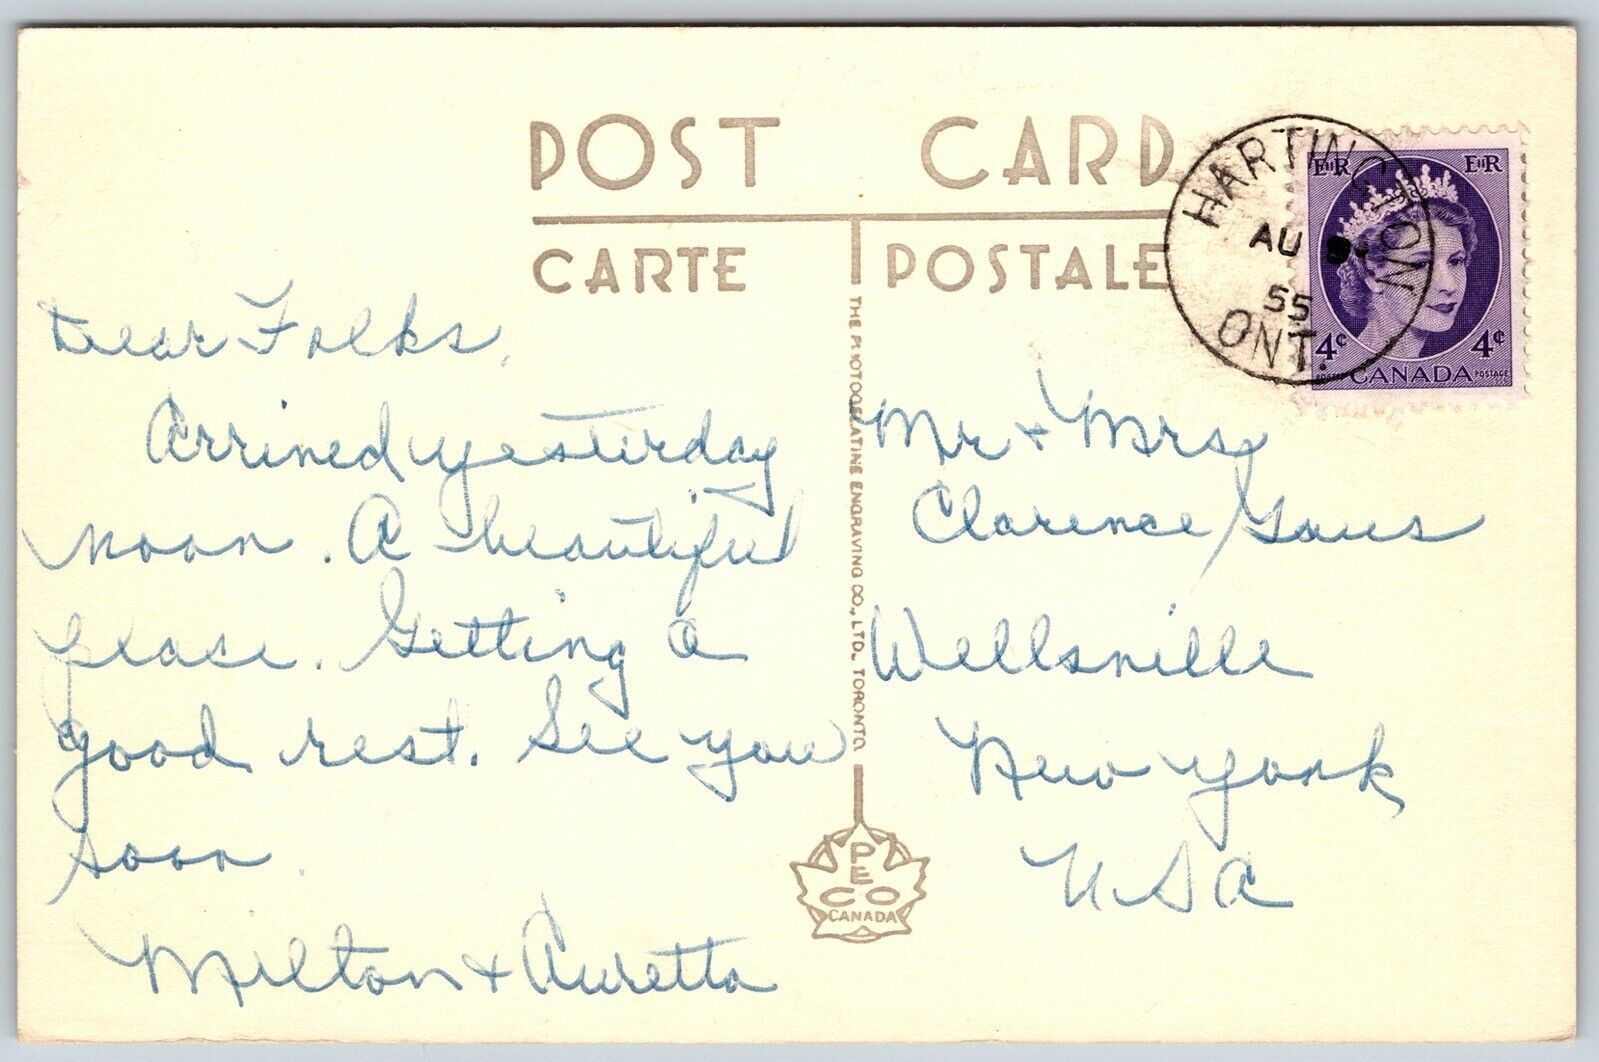 POST CARD
CARTE POSTALE
HARTINGTON
AU 55
ONT.
EIIR EIIR
4¢ 4¢
CANADA
POSTAGE
Dear Folks,
Arrived yesterday
noon. A beautiful
place. Getting a
good rest. See you
soon.
Milton & Auretta
THE PHOTOGELATINE ENGRAVING CO., LTD. TORONTO
PECO
CANADA
Mr & Mrs
Clarence
Wellsville
New York
USA